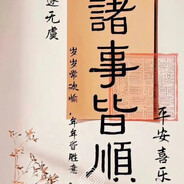 諸事皆順
平安喜乐
岁岁常欢愉，年年皆胜意
遂无虞